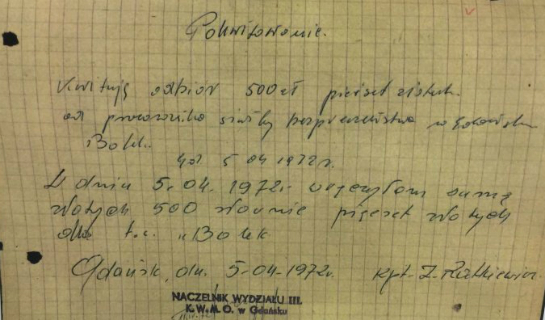 Pokwitowanie.
Kwituję odbiór 500 zł pięćset złotych
od pracownika służby bezpieczeństwa w Gdańsku
Bolek.
5 04 1972 r.
W dniu 5.04.1972 r. wręczyłem sumę
złotych 500 słownie pięćset złotych
dla t.w. "Bolek
Gdańsk, dn. 5-04-1972 r. kpt. Z. Ratkiewicz
NACZELNIK WYDZIAŁU III.
K.W.M.O. w Gdańsku